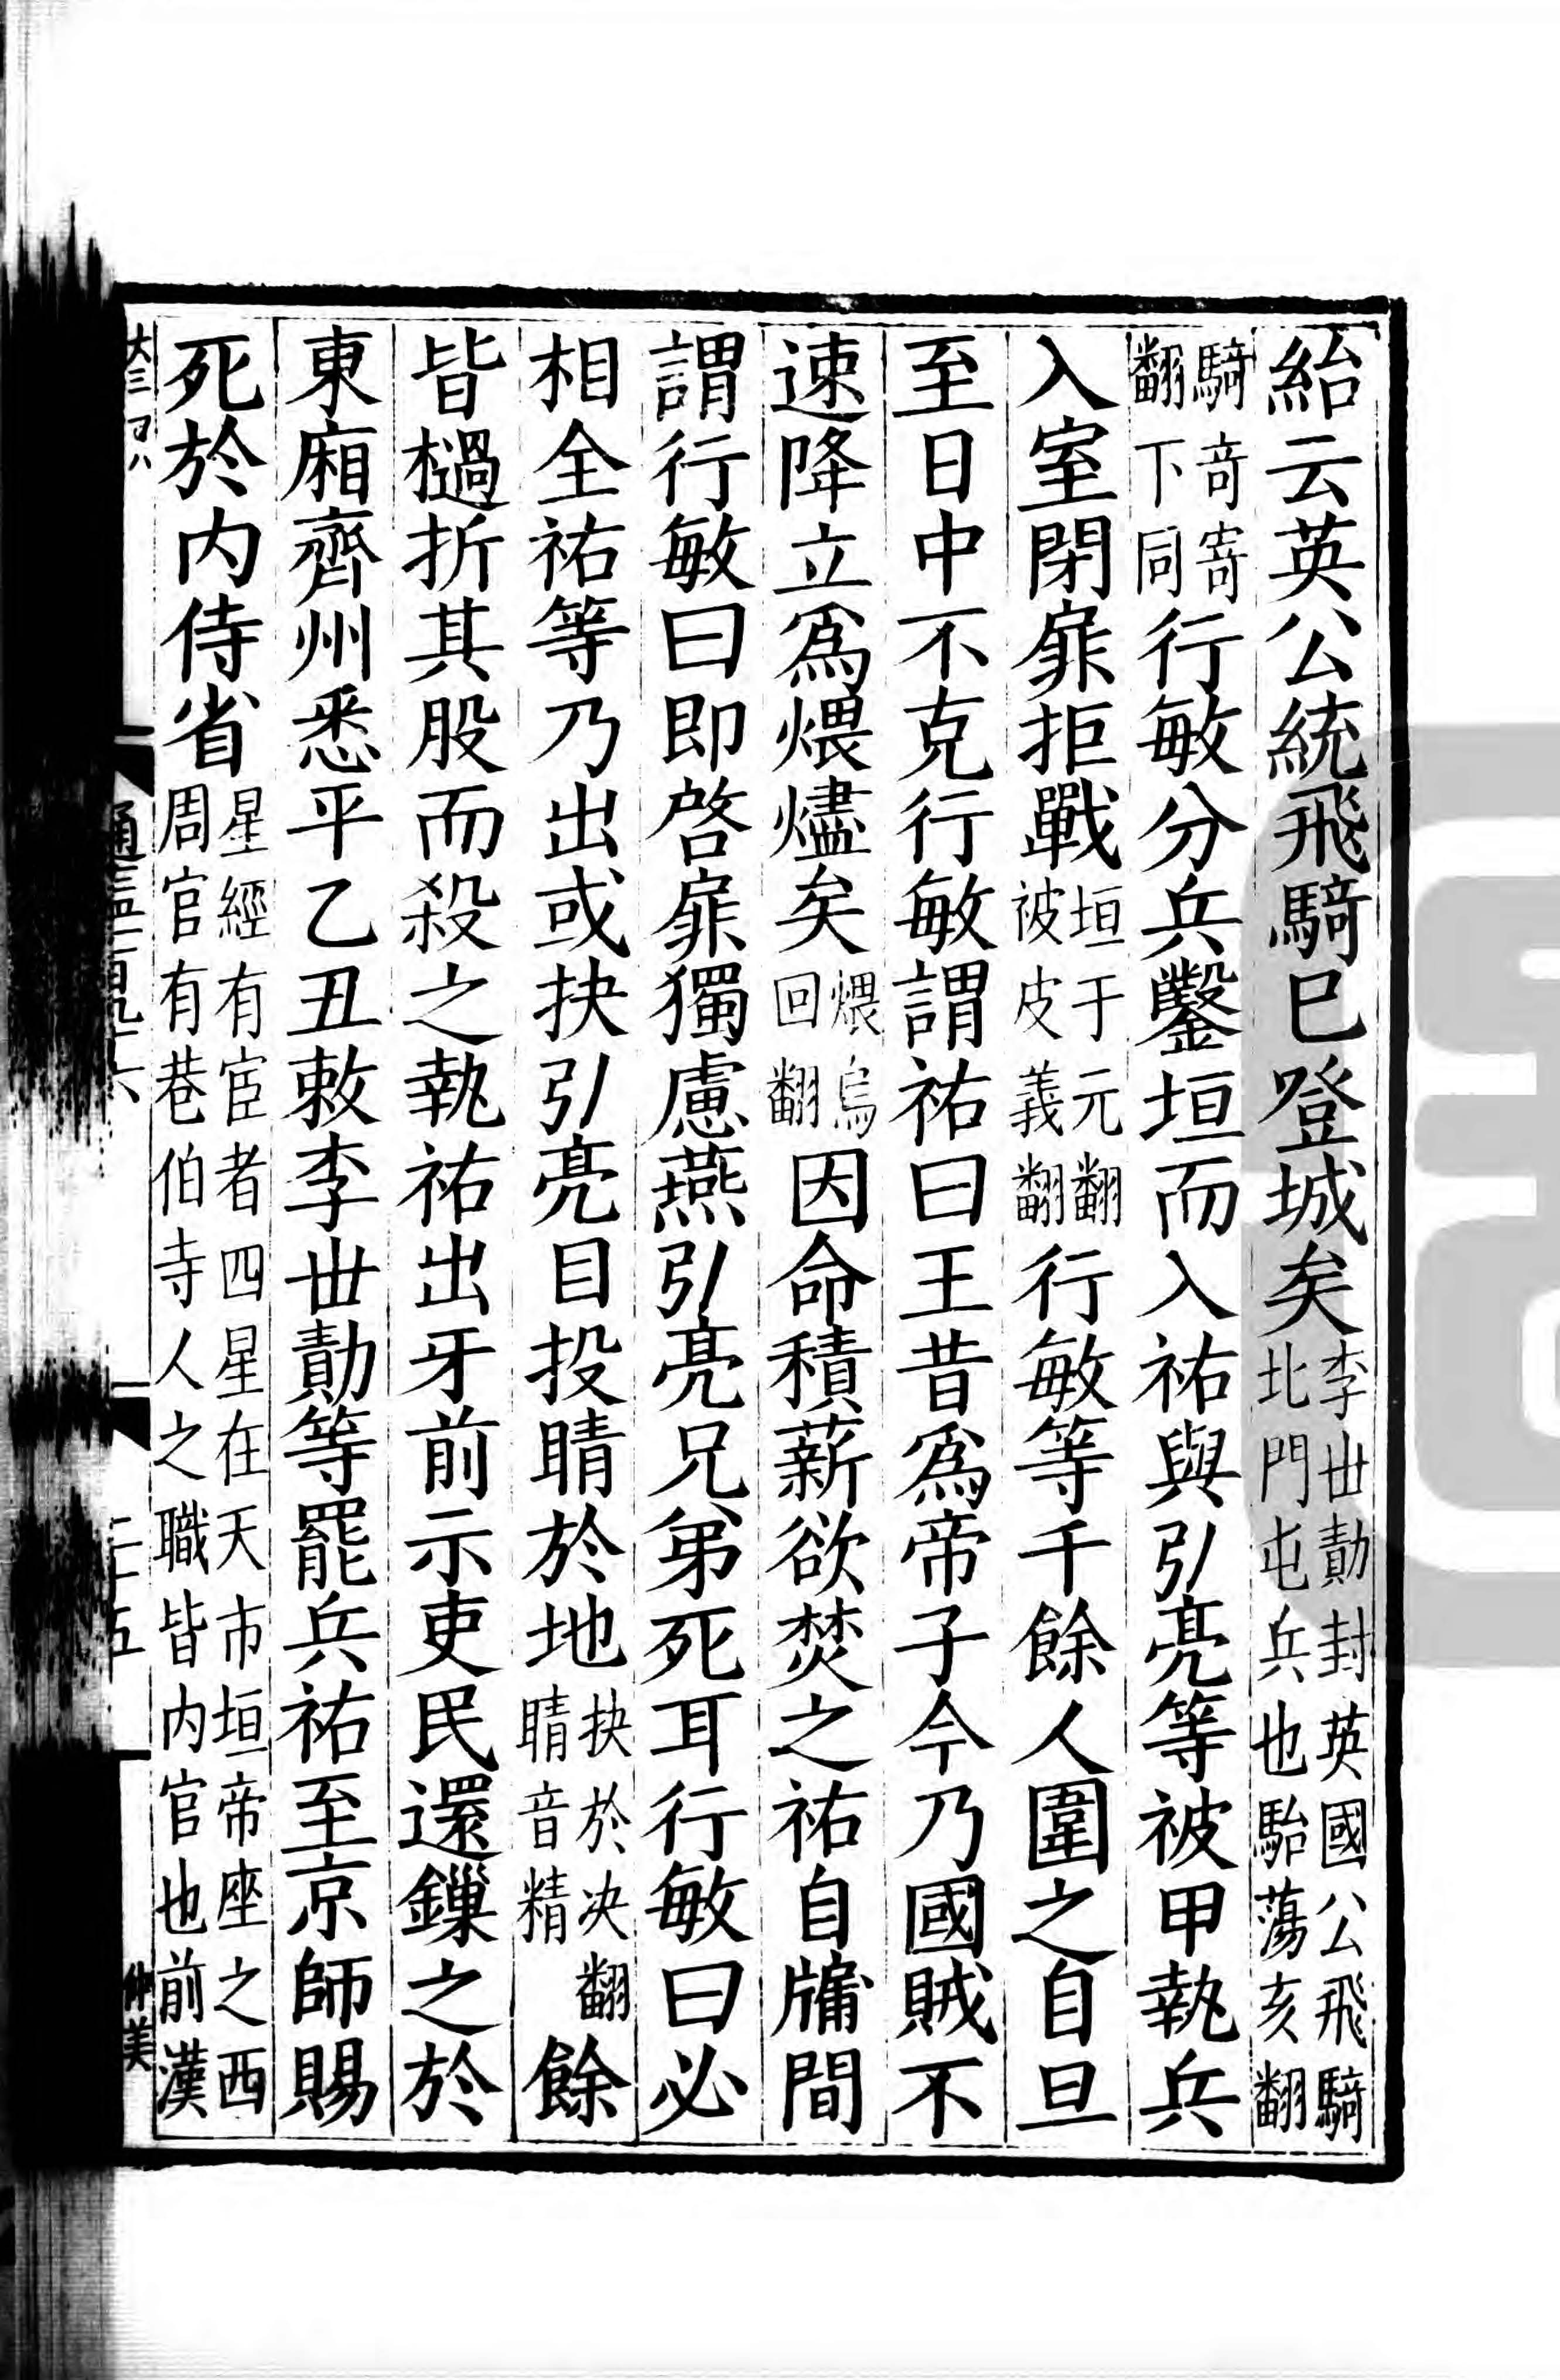 紿云英公統飛騎已登城矣李世勣封英國公飛騎北門屯兵也駘蕩亥翻
騎奇寄翻下同行敏分兵鑿垣而入祐與引亮等被甲執兵
入室閉扉拒戰垣于元翻被皮義翻行敏等千餘人圍之自旦
至日中不克行敏謂祐曰王昔爲帝子今乃國賊不
速降立爲煨燼矣煨烏回翻因命積薪欲焚之祐自牖間
謂行敏曰即啓扉獨慮燕引亮兄弟死耳行敏曰必
相全祐等乃出或抉引亮目投睛於地抉於决翻睛音精餘
皆檛折其股而殺之執祐出牙前示吏民還鏁之於
東廂齊州悉平乙丑敕李世勣等罷兵祐至京師賜
死於内侍省星經有宦者四星在天市垣帝座之西周官有巷伯寺人之職皆内官也前漢
通鑑一百九十六